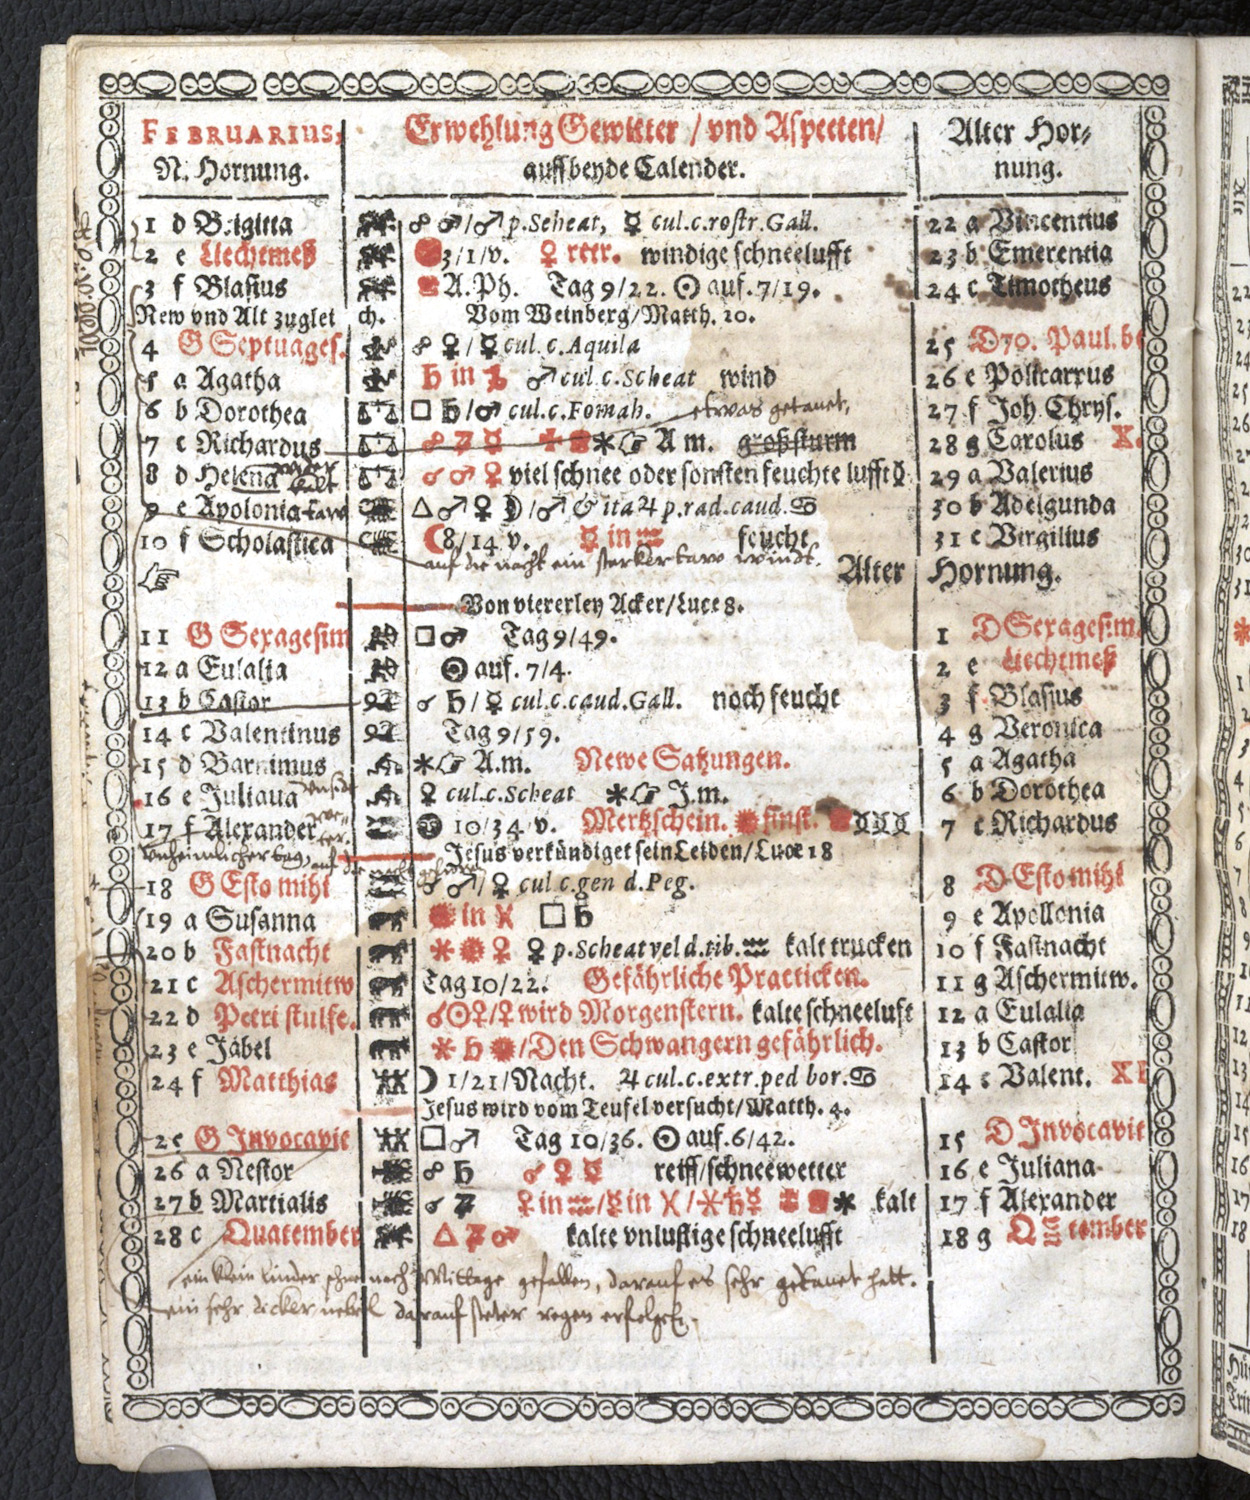 FEBRUARIUS, Erwehlung Gewitter / vnd Aspecten / Alter Hor-
N. Hornung. auff beyde Calender. nung.
1 d Brigitta ☍ ♂/♂ p. Scheat, ☿ cul.c.rostr.Gall. 22 a Vincentius
2 e Liechtmeß 3/1/v. ♀ retr. windige schneelufft 23 b Emerentia
3 f Blasius A.Ph. Tag 9/22. ☉ auf. 7/19. 24 c Timotheus
New vnd Alt zuglei ch. Vom Weinberg/Matth. 20.
4 G Septuages. ☍ ♀/☿ cul.c.Aquila 25 D 70. Paul. be
5 a Agatha ♄ in ♂ cul.c.Scheat wind 26 e Policarpus
6 b Dorothea □ ♄/♂ cul.c.Fomah. etwas getauet, 27 f Joh. Chrys.
7 c Richardus ☍ ♃ ☿ * ☞ A m. großsturm 28 g Carolus X.
8 d Helena ☌ ♂ ♀ viel schnee oder sonsten feuchte lufft 29 a Valerius
9 e Apolonia △ ♂ ♀ ☽/♂ & ita ♃ p.rad.caud.♋ 30 b Adelgunda
10 f Scholastica ☾ 8/14 v. ☿ in ♒ feucht 31 c Virgilius
auf die nacht ein starker taw windt. Alter Hornung.
☞
Von viererley Acker/Luce 8.
11 G Sexagesim □ ♂ Tag 9/49. 1 D Sexagesim.
12 a Eulalia ☉ auf. 7/4. 2 e Liechtmeß
13 b Castor ☌ ♄/☿ cul.c.caud.Gall. noch feucht 3 f Blasius
14 c Valentinus Tag 9/59. 4 g Veronica
15 d Barnimus * ☞ A.m. Newe Satzungen. 5 a Agatha
16 e Juliana ♀ cul.c.Scheat * ☞ J.m. 6 b Dorothea
17 f Alexander 10/34 v. Mertzschein. finst. 7 c Richardus
vnheimlicher tag, Jesus verkündiget sein Leiden/Luce 18
18 G Esto mihi ☍ ♂/♀ cul.c.gen d.Peg. 8 D Esto mihi
19 a Susanna in ♓ □ ♄ 9 e Apollonia
20 b Fastnacht * ♀ ♀ p.Scheat vel d.tib.♒ kalt trucken 10 f Fastnacht
21 c Aschermitw Tag 10/22. Gefährliche Practicken. 11 g Aschermitw.
22 d Petri stulfe. ☌☉♀/♀ wird Morgenstern. kalte schneeluft 12 a Eulalia
23 e Jábel * ♄ /Den Schwangern gefährlich. 13 b Castor
24 f Matthias ☽ 1/21/Nacht. ♃ cul.c.extr.ped bor.♋ 14 c Valent. XI
Jesus wird vom Teufel versucht/Matth. 4.
25 G Invocavit □ ♂ Tag 10/36. ☉ auf. 6/42. 15 D Invocavit
26 a Nestor ☍ ♄ ☌ ♀ ☿ reiff/schneewetter 16 e Juliana
27 b Martialis ☌ ♃ ♀ in ♒/☿ in ♓/*♄☿ * kalt 17 f Alexander
28 c Quatember △ ♃ ♂ kalte vnlustige schneelufft 18 g Quatember
ein klein linder schne nach Mittage gefallen, darauf es sehr getauet hatt.
ein sehr dicker nebel darauf steter regen erfolget.